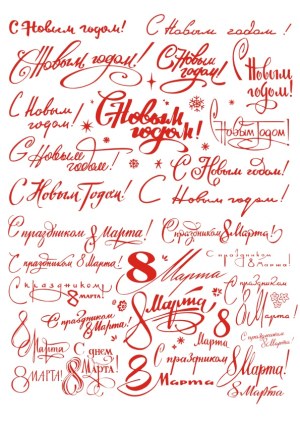 С Новым годом!
С Новым годом!
С Новым годом!
С Новым
годом!
С Новым
годом!
С Новым
годом!
С Новым
годом!
С Новым Годом!
С Новым
годом!
С Новым годом!
С Новым Годом!
С Новым
годом!
С праздником 8 Марта!
С праздником 8 Марта!
С праздником
8 Марта!
С праздником 8 Марта!
8 Марта
С праздником
8 Марта!
С праздником
8 МАРТА!
8 Марта!
С праздником
8 Марта!
С праздником
8 Марта!
8 Марта
С днем
8 Марта!
С праздником
8 Марта
С праздником
8 Марта!
8 МАРТА!
8 Марта!
8 Марта